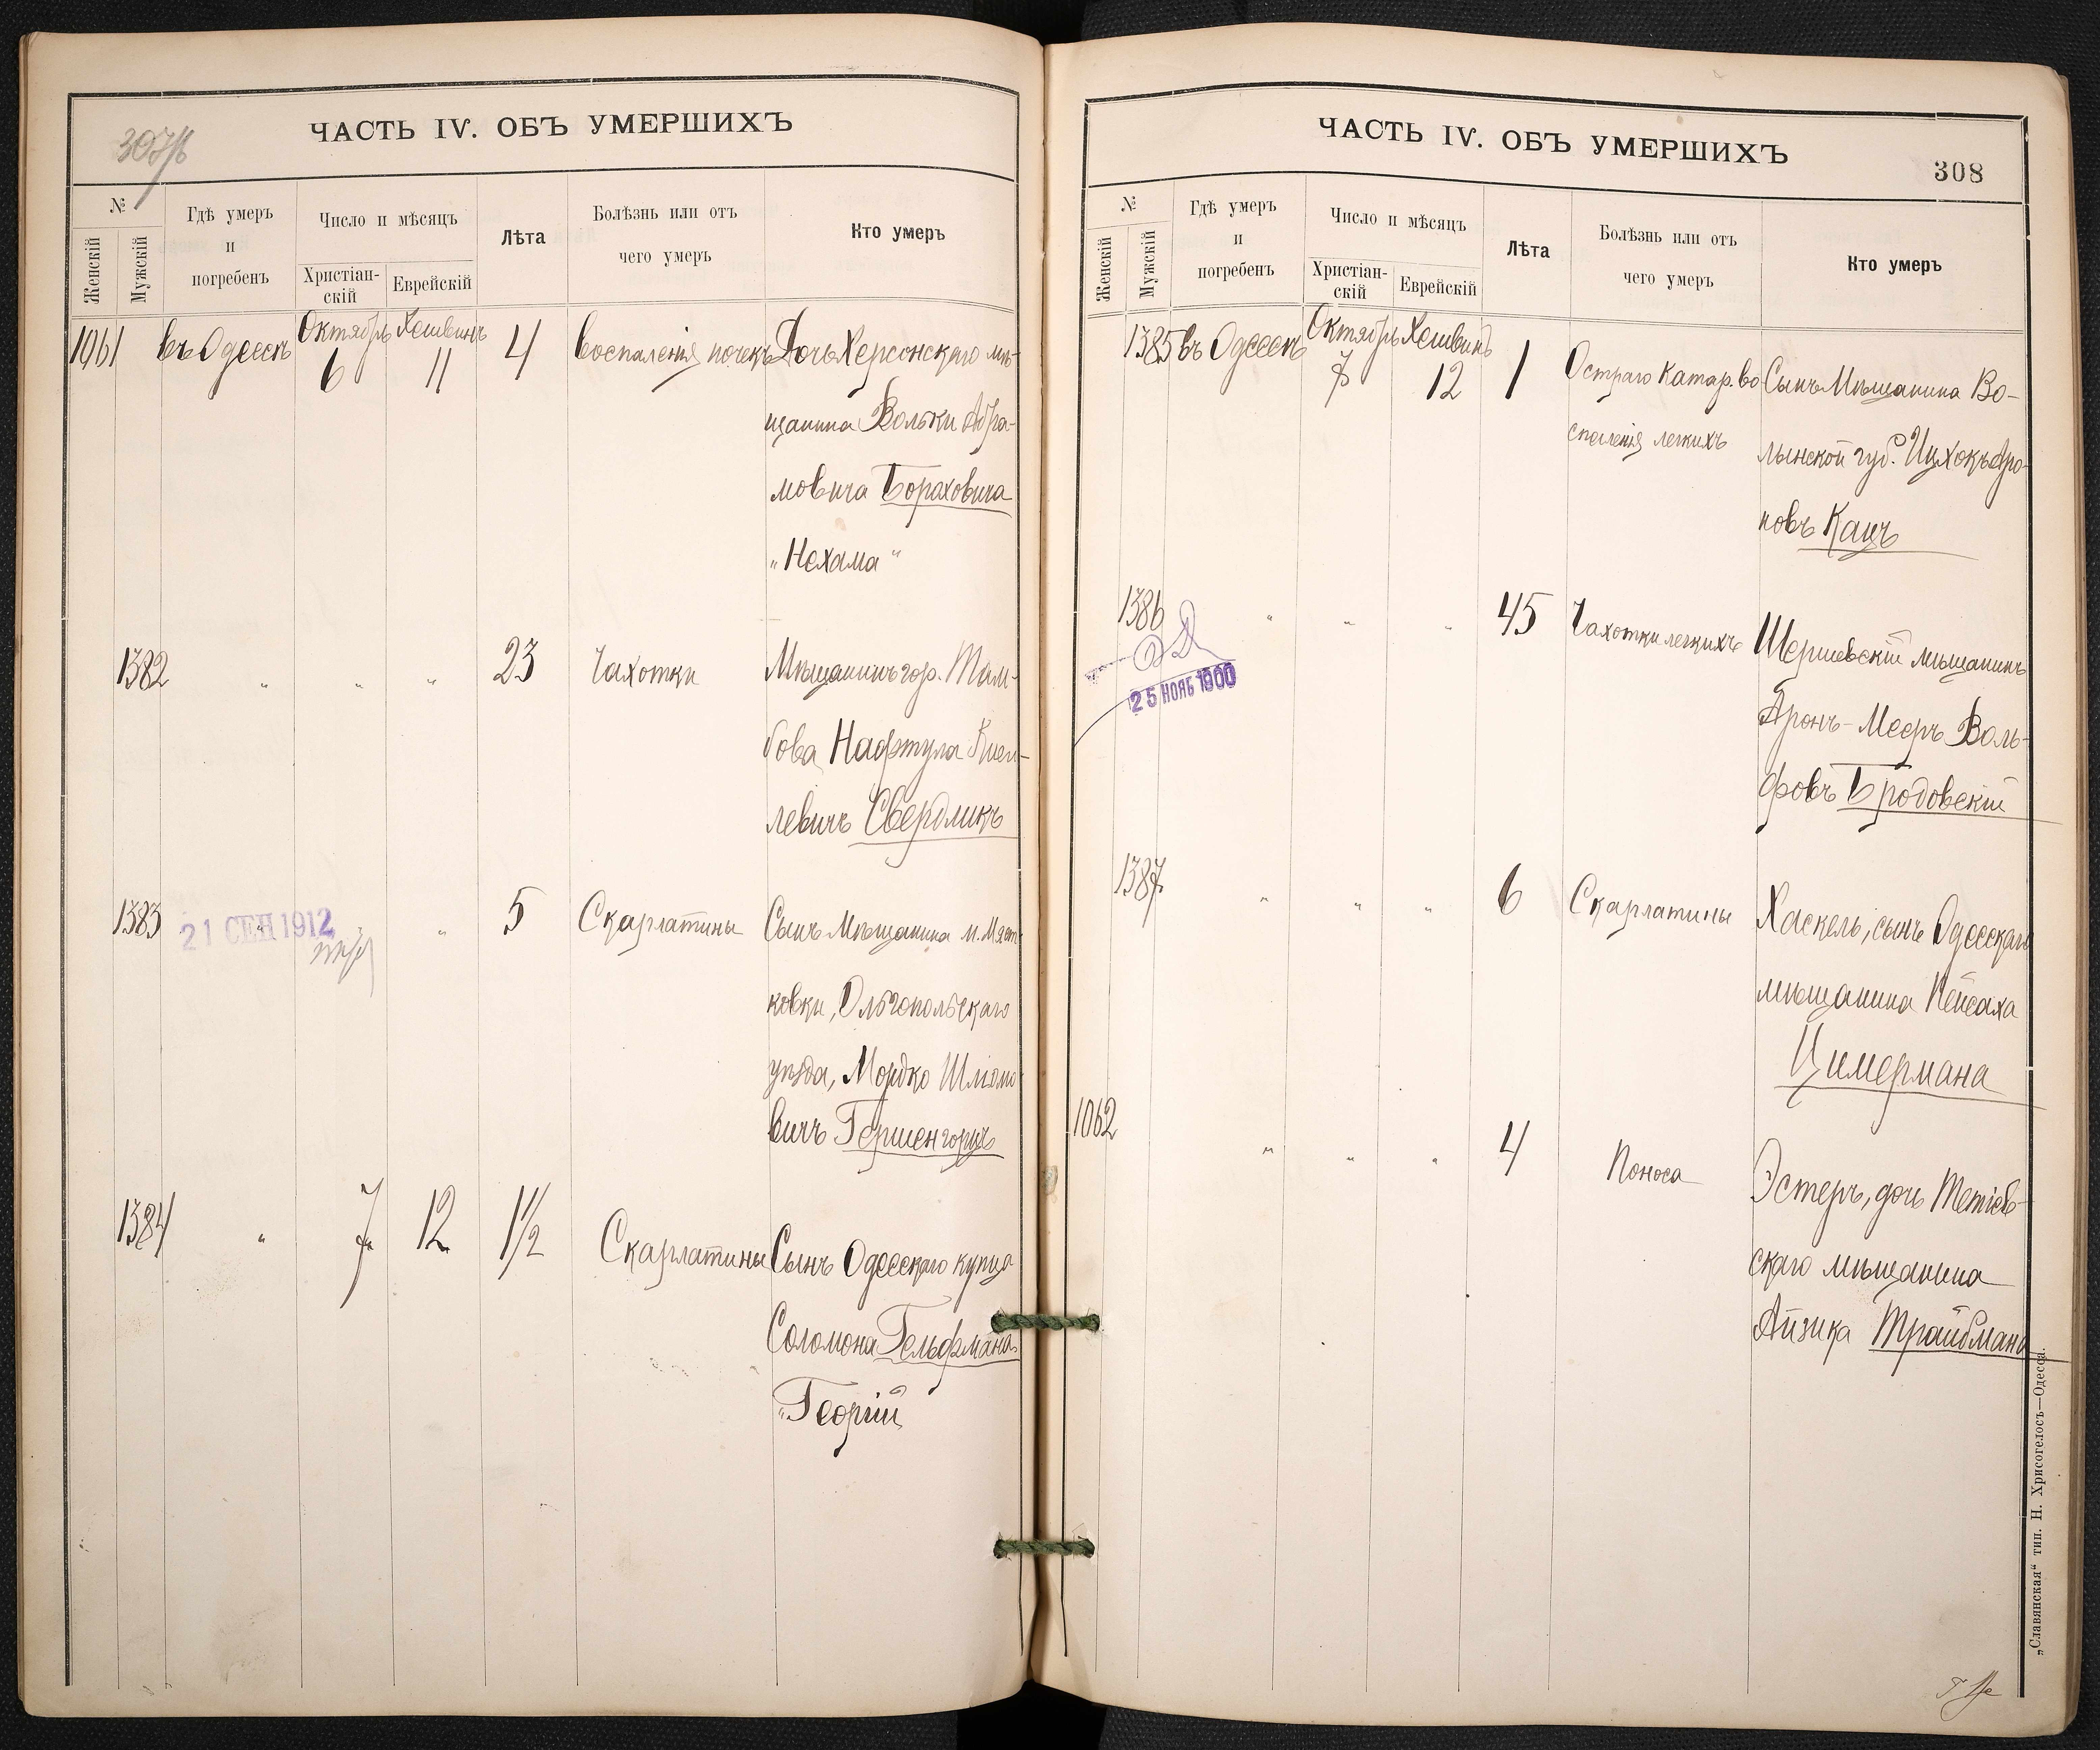 307/б
ЧАСТЬ IV. ОБЪ УМЕРШИХЪ
№
Женскій
Мужскій
Гдѣ умеръ
и
погребенъ
Число и мѣсяцъ
Христіан-
скій
Еврейскій
Лѣта
Болѣзнь или отъ
чего умеръ
Кто умеръ
1061 въ Одессѣ Октябрь 6 Хешвинъ 11 4 Воспаленія почекъ Дочь Херсонскаго мѣ-
щанина Вольки Абра-
мовича Бораховича
„Нехама“
1382 " " " 23 Чахотки Мѣщанинъ гор. Там-
бова Нафтула Киве-
левичъ Свердликъ
1383 " " " 5 Скарлатины Сынъ Мѣщанина м. Мяст-
ковки, Ольгопольскаго
уѣзда, Мордко Шліомо-
вичъ Гершенгорнъ
21 СЕН 1912
1384 " 7 12 1½ Скарлатины Сынъ Одесскаго купца
Соломона Гельфмана
„Георгій
ЧАСТЬ IV. ОБЪ УМЕРШИХЪ
308
№
Женскій
Мужскій
Гдѣ умеръ
и
погребенъ
Число и мѣсяцъ
Христіан-
скій
Еврейскій
Лѣта
Болѣзнь или отъ
чего умеръ
Кто умеръ
1385 въ Одессѣ Октябрь 7 Хешвинъ 12 1 Остраго катар. во- Сынъ Мѣщанина Во-
спаленія легкихъ лынской губ. Ицхокъ Аро-
новъ Кацъ
1386 " " " 45 Чахотки легкихъ Шершевскій мѣщанинъ
Аронъ-Мееръ Воль-
фовъ Бродовскій
25 НОЯБ 1900
1387 " " " 6 Скарлатины Хаскель, сынъ Одесскаго
мѣщанина Пейсаха
Цимермана
1062 " " " 4 Поноса Эстеръ, дочь Тетіев-
скаго мѣщанина
Айзика Трайбмана
„Славянская“ тип. Н. Хрисогелосъ—Одесса.